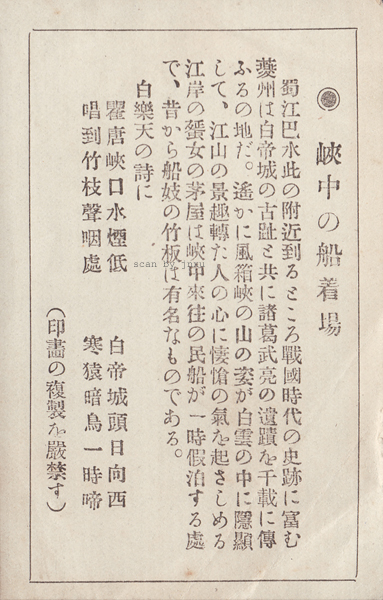 ◉ 峽中の船着場
蜀江巴水此の附近到るところ戰國時代の史跡に富む
夔州は白帝城の古趾と共に諸葛武亮の遺蹟を千載に傳
ふるの地だ。遙かに風箱峽の山の姿が白雲の中に隱顯
して、江山の景趣轉た人の心に悽愴の氣を起さしめる
江岸の蜑女の茅屋は峽中來往の民船が一時假泊する處
で、昔から船妓の竹板は有名なものである。
白樂天の詩に
瞿唐峽口水煙低 白帝城頭日向西
唱到竹枝聲咽處 寒猿暗鳥一時啼
(印畫の複製を嚴禁す)
scan by